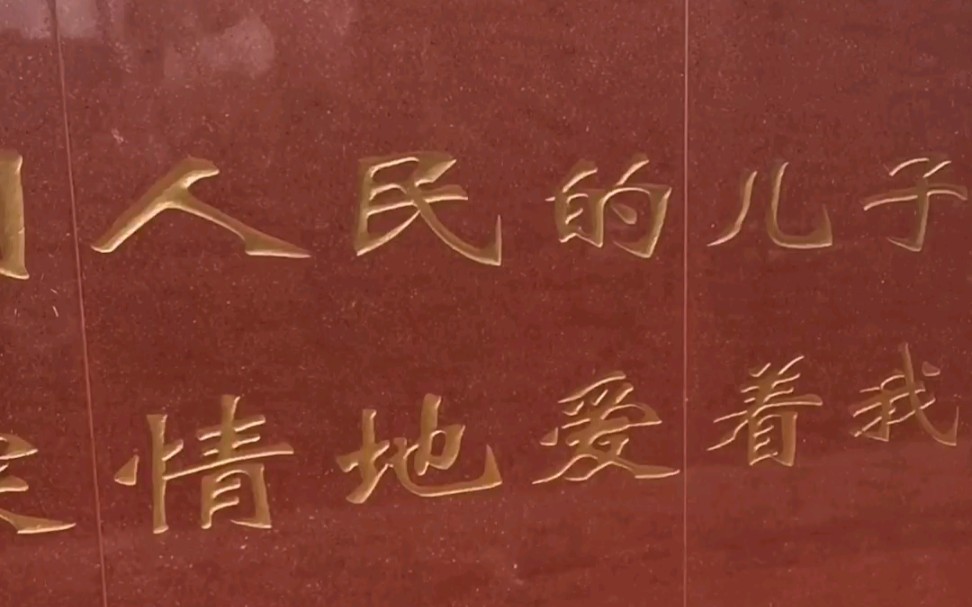 人民的儿子
情地爱着我